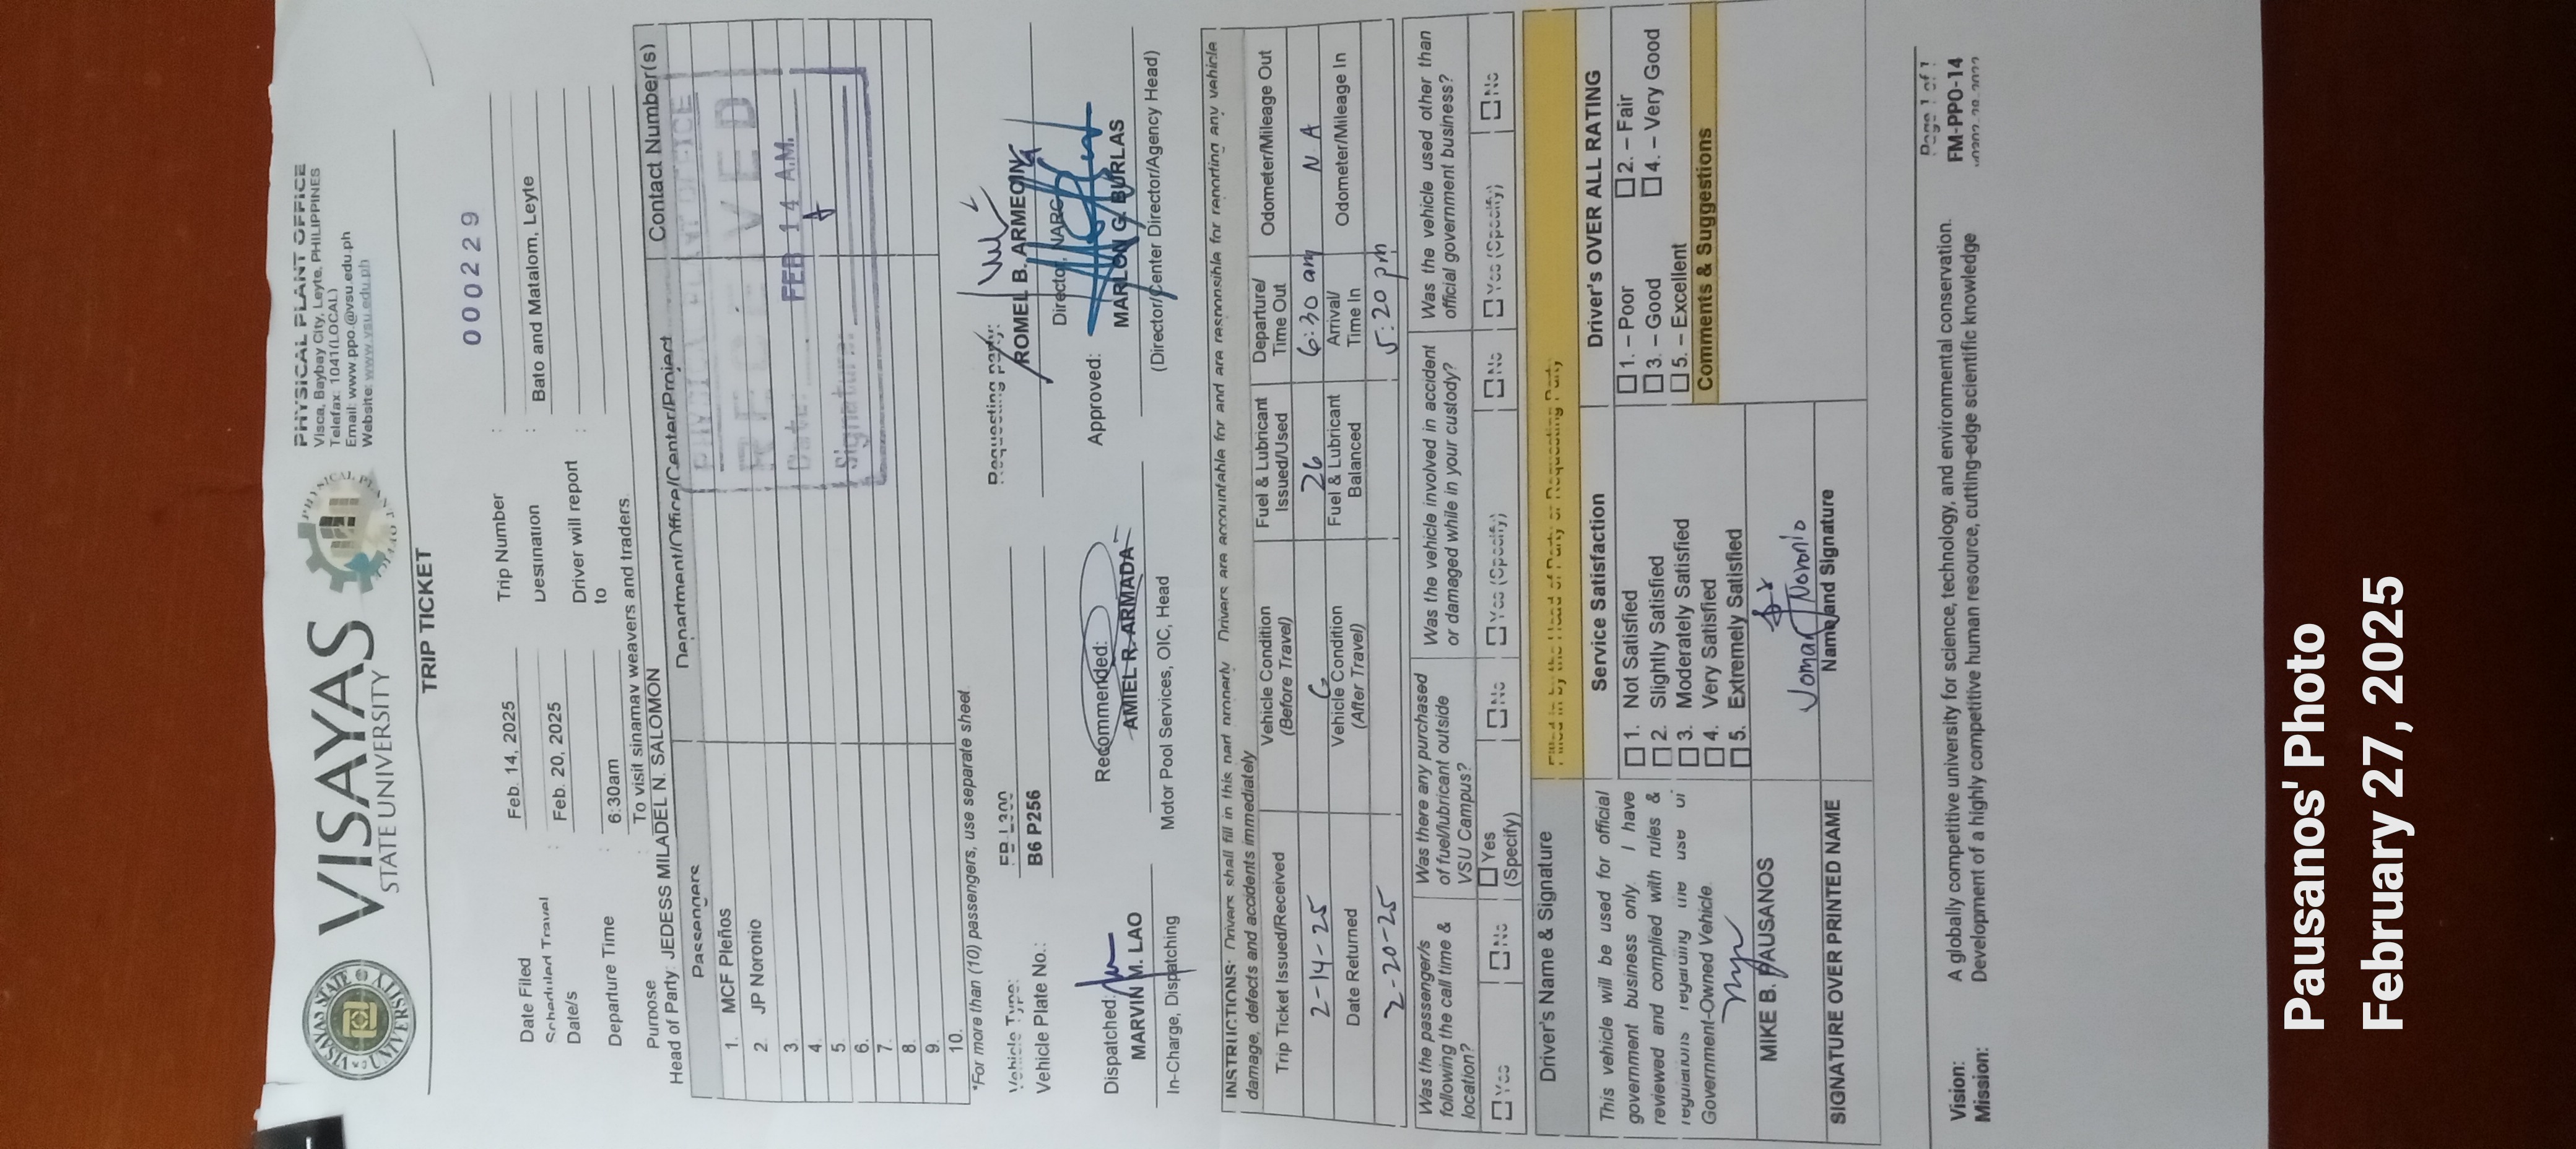 VISAYAS
STATE UNIVERSITY
PHYSICAL PLANT OFFICE
Visca, Baybay City, Leyte, PHILIPPINES
Telefax: 1041(LOCAL)
Email: www.ppo.@vsu.edu.ph
Website: www.vsu.edu.ph
TRIP TICKET
000229
Date Filed Feb. 14, 2025 Trip Number :
Scheduled Travel Date/s : Feb. 20, 2025 Destination : Bato and Matalom, Leyte
Departure Time : 6:30am Driver will report to :
Purpose : To visit sinamay weavers and traders.
Head of Party: JEDESS MILADEL N. SALOMON
Passengers Department/Office/Center/Project Contact Number(s)
1. MCF Pleños
2. JP Noronio
3.
4.
5.
6.
7.
8.
9.
10.
PHYSICAL PLANT OFFICE
RECEIVED
Date: FEB 14 A.M.
Signature:
*For more than (10) passengers, use separate sheet.
Requesting party:
Vehicle Type:
Vehicle Plate No.: B6 P256
ROMEL B. ARMECIN
Director, NARC
Dispatched: Recommended: Approved:
MARVIN M. LAO AMIEL R. ARMADA MARLON G. BURLAS
In-Charge, Dispatching Motor Pool Services, OIC, Head (Director/Center Director/Agency Head)
INSTRUCTIONS: Drivers shall fill in this part properly. Drivers are accountable for and are responsible for reporting any vehicle
damage, defects and accidents immediately
Trip Ticket Issued/Received Vehicle Condition (Before Travel) Fuel & Lubricant Issued/Used Departure/ Time Out Odometer/Mileage Out
2-14-25 G 26 6:30 am N A
Date Returned Vehicle Condition (After Travel) Fuel & Lubricant Balanced Arrival/ Time In Odometer/Mileage In
2-20-25 5:20 pm
Was the passenger/s following the call time & location? Was there any purchased of fuel/lubricant outside VSU Campus? Was the vehicle involved in accident or damaged while in your custody? Was the vehicle used other than official government business?
Yes No Yes (Specify) No Yes (Specify) No Yes (Specify) No
Driver's Name & Signature Filled in by the Head of Party or Requesting Party
This vehicle will be used for official
government business only. I have
reviewed and complied with rules &
regulations regarding the use of
Government-Owned Vehicle.
MIKE B. PAUSANOS
SIGNATURE OVER PRINTED NAME
Service Satisfaction
1. Not Satisfied
2. Slightly Satisfied
3. Moderately Satisfied
4. Very Satisfied
5. Extremely Satisfied
Jomar Noronio
Name and Signature
Driver's OVER ALL RATING
1. – Poor 2. – Fair
3. – Good 4. – Very Good
5. – Excellent
Comments & Suggestions
Vision: A globally competitive university for science, technology, and environmental conservation.
Mission: Development of a highly competitive human resource, cutting-edge scientific knowledge
Page 1 of 1
FM-PPO-14
Pausanos' Photo
February 27, 2025